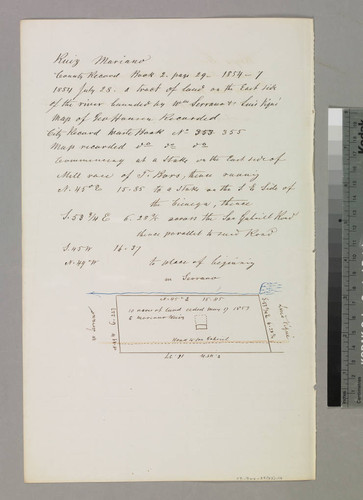 Ruiz Mariano
County Record Book 2. page 29 - 1854 - 7
1854 July 28 - a tract of land on the East side
of the river bounded by Wm Serrano & Luis
Map of Geo Hansen Recorded
City Record Waste Book No 353 355
Map recorded do do do
Commencing at a Stake on the East side of
Mill race of thence running
N. 45° E 15-85 to a stake on the S E side of
the Cienega, thence
S. 53 3/4 E across the San Gabriel Road
thence parallel to said Road
S. 45 W 16-27
N. 49° W to place of beginning
on Serrano
N. 45° E 15.85
land ceded
Mariano Ruiz
Road to San Gabriel